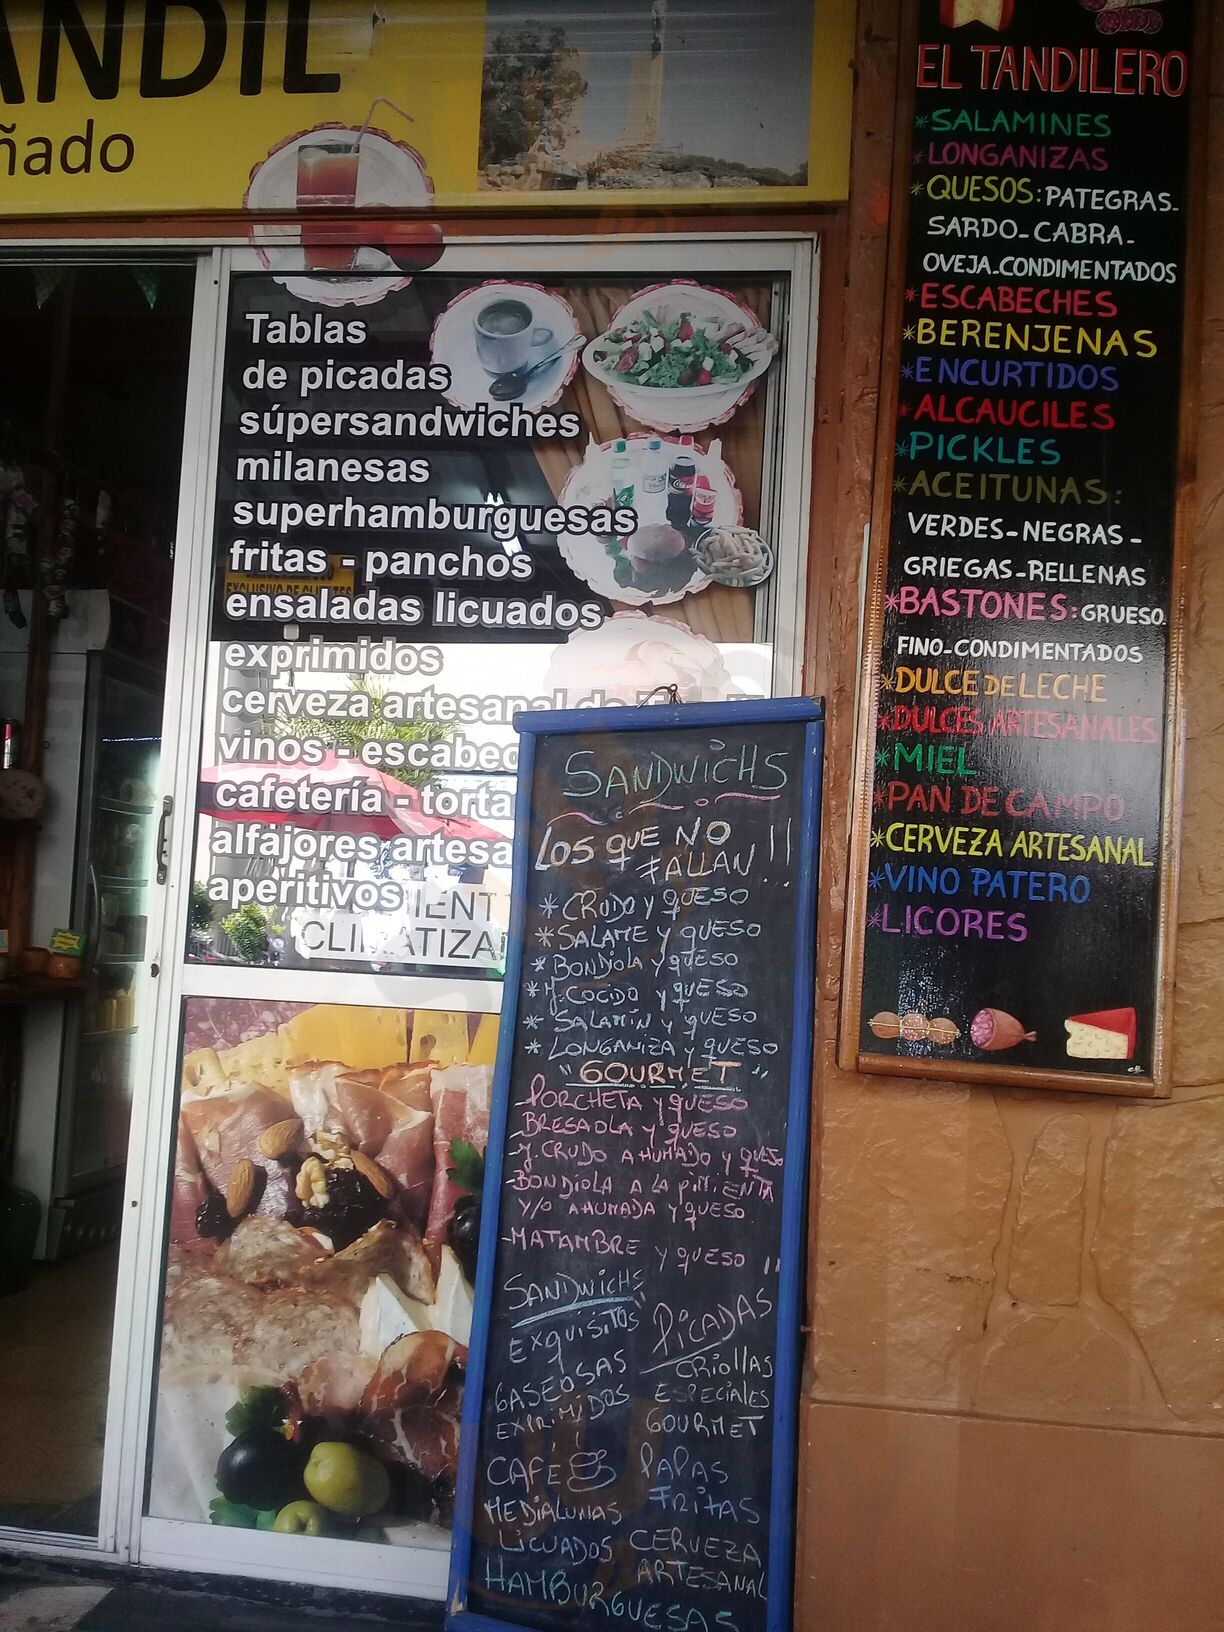 ANDIL
ñado
Tablas
de picadas
súpersandwiches
milanesas
superhamburguesas
fritas - panchos
ensaladas licuados
exprimidos
cerveza artesanal de
vinos - escabec
cafetería - torta
alfajores artesa
aperitivos
IENT
CLIMATIZA
SANDWICHS
LOS QUE NO
FALLAN!!
* CRUDO Y QUESO
* SALAME Y QUESO
* BONDIOLA Y QUESO
* J. COCIDO Y QUESO
* SALAMÍN Y QUESO
* LONGANIZA Y QUESO
"GOURMET"
- PORCHETA Y QUESO
- BRESAOLA Y QUESO
- J. CRUDO AHUMADO Y QUESO
- BONDIOLA A LA PIMIENTA
Y/O AHUMADA Y QUESO
- MATAMBRE Y QUESO !!
SANDWICHS
EXQUISITOS
GASEOSAS
EXPRIMIDOS
CAFÉ
MEDIALUNAS
LICUADOS
HAMBURGUESAS
PICADAS
CRIOLLAS
ESPECIALES
GOURMET
PAPAS
FRITAS
CERVEZA
ARTESANAL
EL TANDILERO
*SALAMINES
*LONGANIZAS
*QUESOS: PATEGRAS-
SARDO-CABRA-
OVEJA-CONDIMENTADOS
*ESCABECHES
*BERENJENAS
*ENCURTIDOS
*ALCAUCILES
*PICKLES
*ACEITUNAS:
VERDES-NEGRAS-
GRIEGAS-RELLENAS
*BASTONES: GRUESO-
FINO-CONDIMENTADOS
*DULCE DE LECHE
*DULCES ARTESANALES
*MIEL
*PAN DE CAMPO
*CERVEZA ARTESANAL
*VINO PATERO
*LICORES